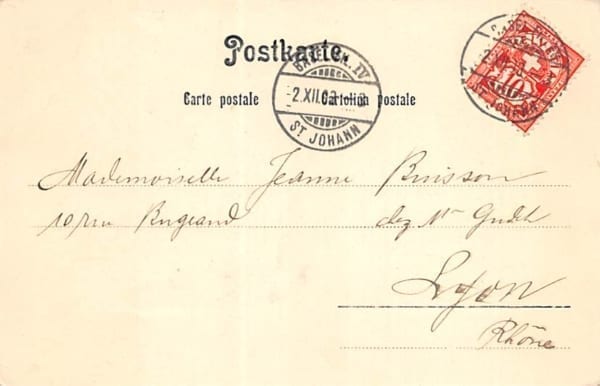 Postkarte.
Carte postale
Cartolina postale
BASEL IV
2.XII.02
ST JOHANN
10
Mademoiselle Jeanne Buisson
10 rue Bugeaud chez Mr
Lyon
Rhône